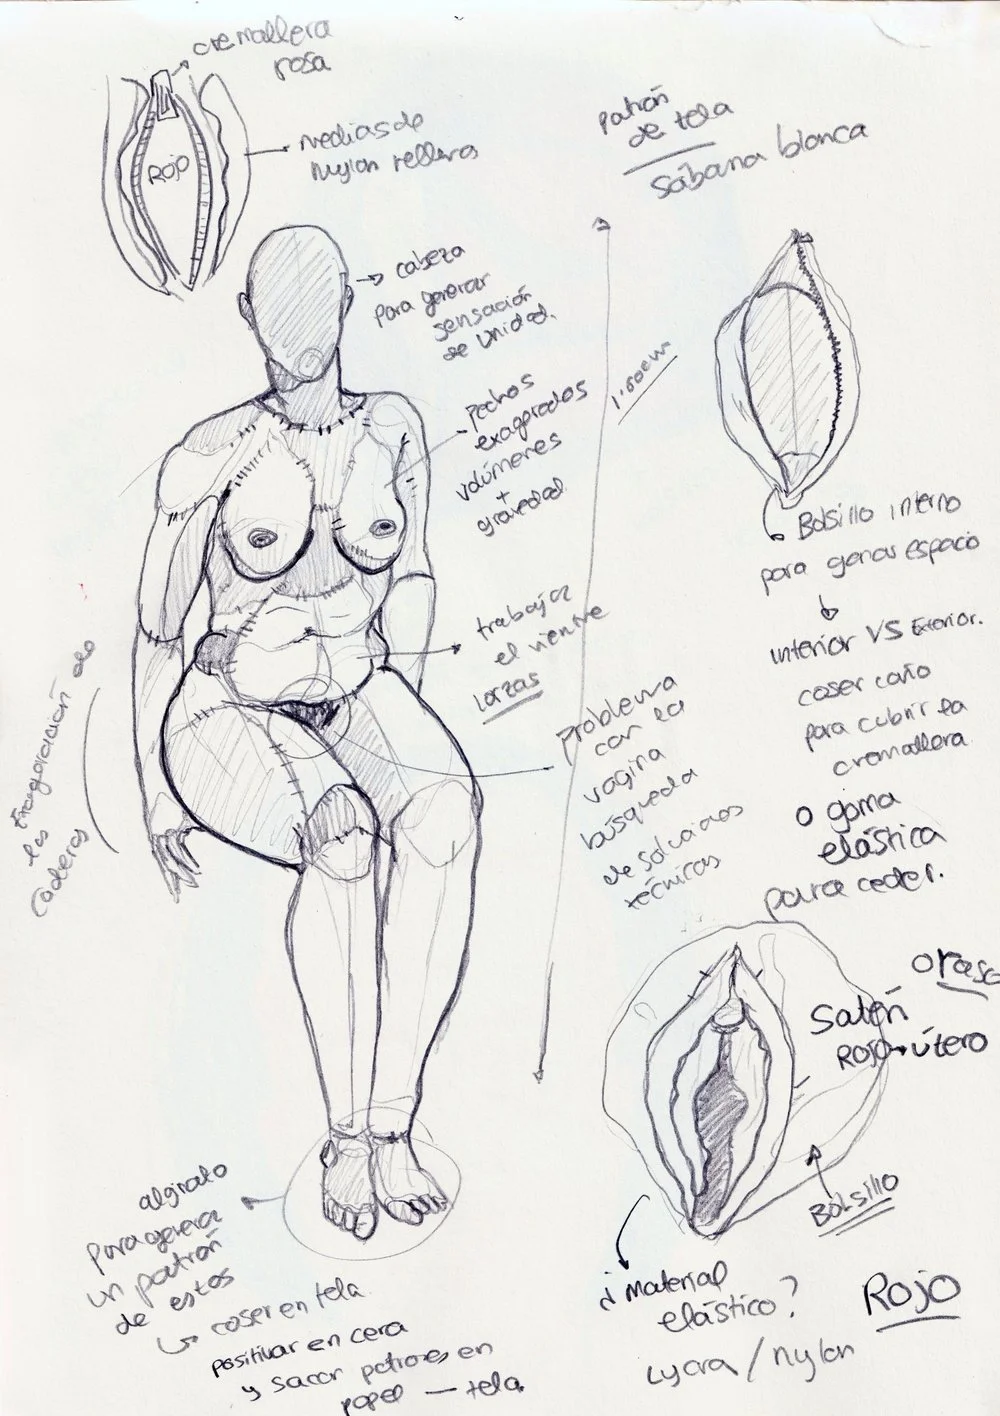 cremallera
rosa
medias de
nylon rellenas
ROJO
patrón
de tela
sábana blanca
cabeza
para generar
sensación
de unidad.
pechos
exagerados
volúmenes
+
gravedad
trabajar
el vientre
lorzas
problema
con la
vagina
búsqueda
de soluciones
técnicas
Exageración de
las
caderas
Bolsillo interno
para ganar espacio
interior VS Exterior.
coser
para cubrir la
cremallera
o goma
elástica
para ceder.
o raso
Satén
ROJO útero
Bolsillo
¿material
elástico?
Lycra / nylon
ROJO
alginato
para generar
un patrón
de estos
coser en tela
positivar en cera
y sacar patrones en
papel — tela